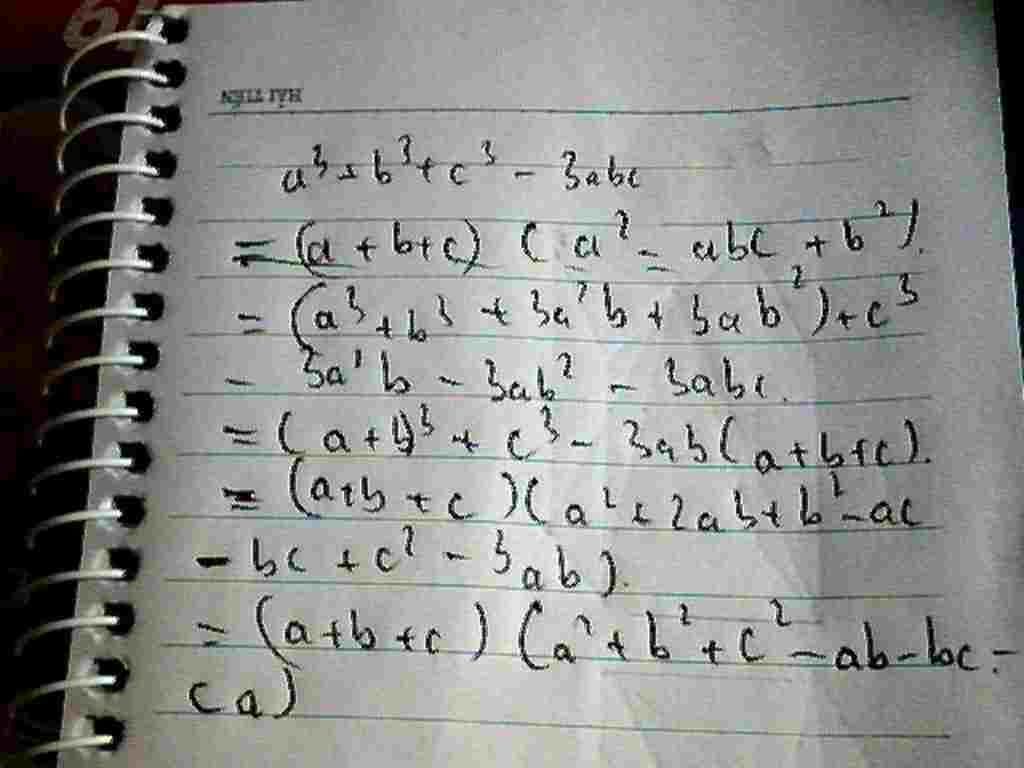 HẢI TIẾN
a³ + b³ + c³ - 3abc
= (a + b + c) (a² - abc + b²).
= (a³ + b³ + 3a²b + 3ab²) + c³
- 3a²b - 3ab² - 3abc.
= (a + b)³ + c³ - 3ab(a + b + c).
= (a + b + c)(a² + 2ab + b² - ac
- bc + c² - 3ab).
= (a + b + c) (a² + b² + c² - ab - bc -
ca)